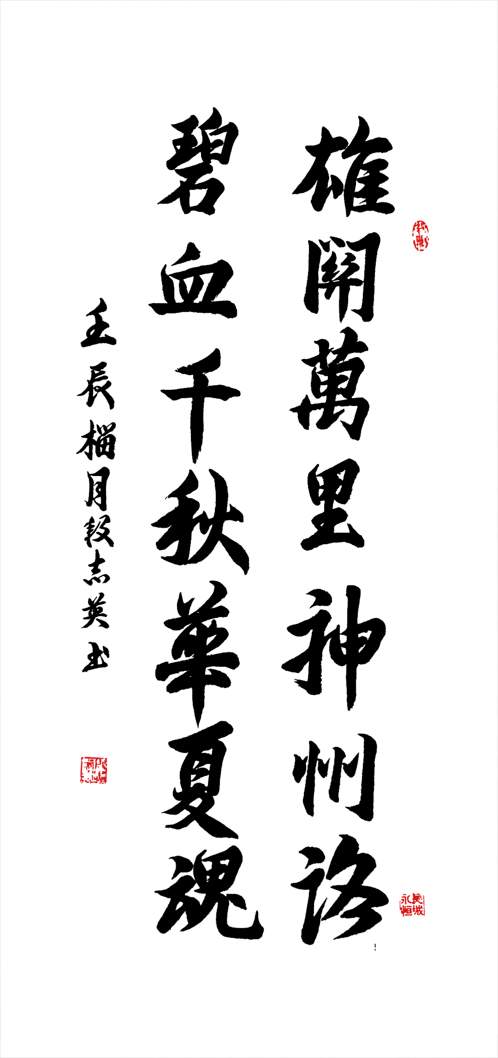 雄關萬里神州路
碧血千秋華夏魂
壬辰榴月段志英書
長城
永恒